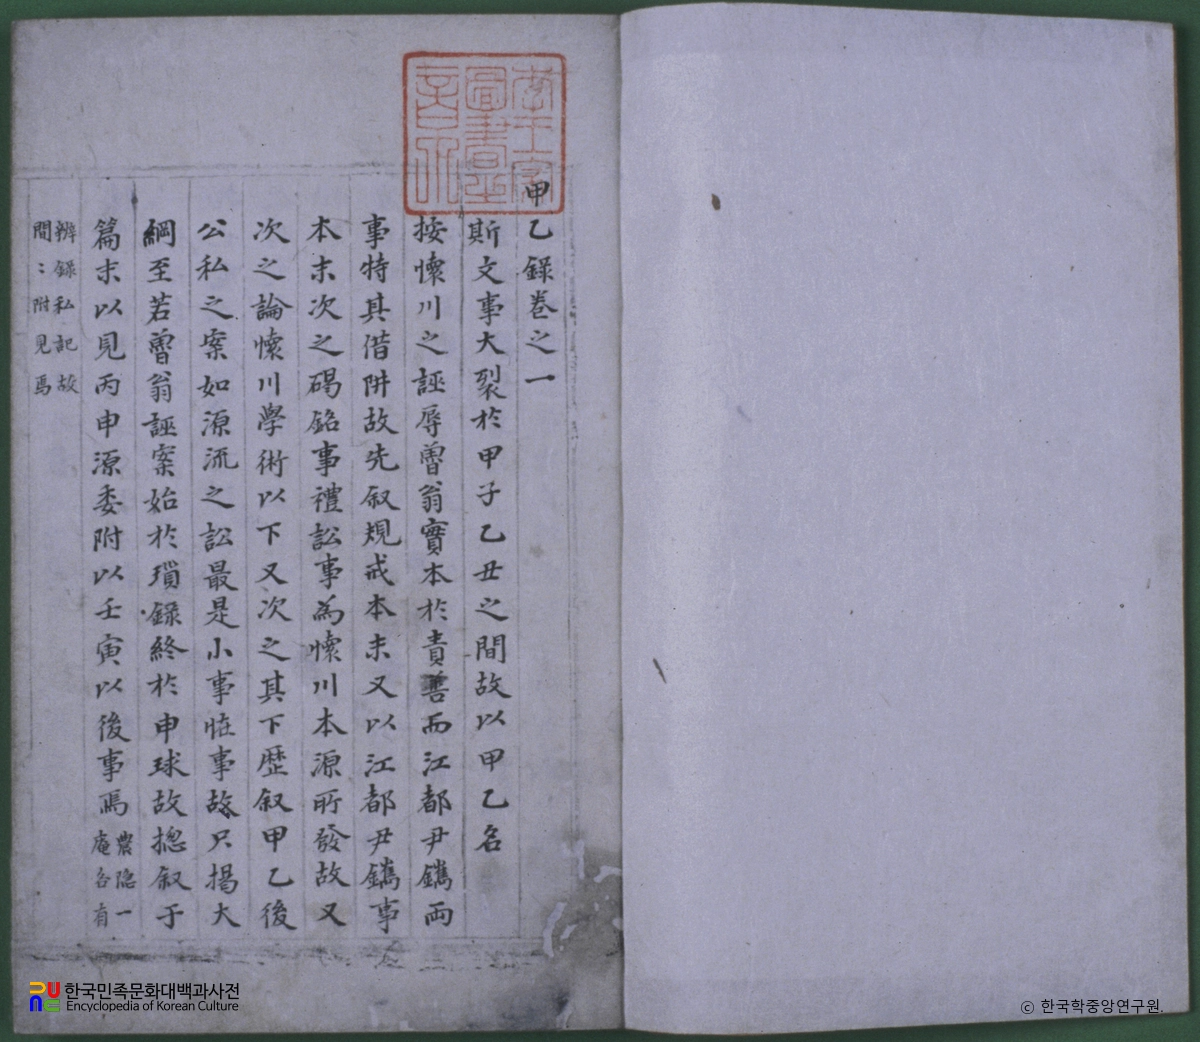 甲乙錄卷之一
斯文事大裂於甲子乙丑之間故以甲乙名
按懷川之誣辱魯翁實本於責善而江都尹鑴兩
事特其借阱故先叙規戒本末又以江都尹鑴事
本末次之碣銘事禮訟事為懷川本源所發故又
次之論懷川學術以下又次之其下歷叙甲乙後
公私之案如源流之訟最是小事恠事故只揭大
綱至若魯翁誣案始於瑣錄終於申球故摠叙于
篇末以見丙申源委附以壬寅以後事焉農隱一庵各有
辨録私記故
間〻附見焉
한국민족문화대백과사전
Encyclopedia of Korean Culture
ⓒ 한국학중앙연구원.